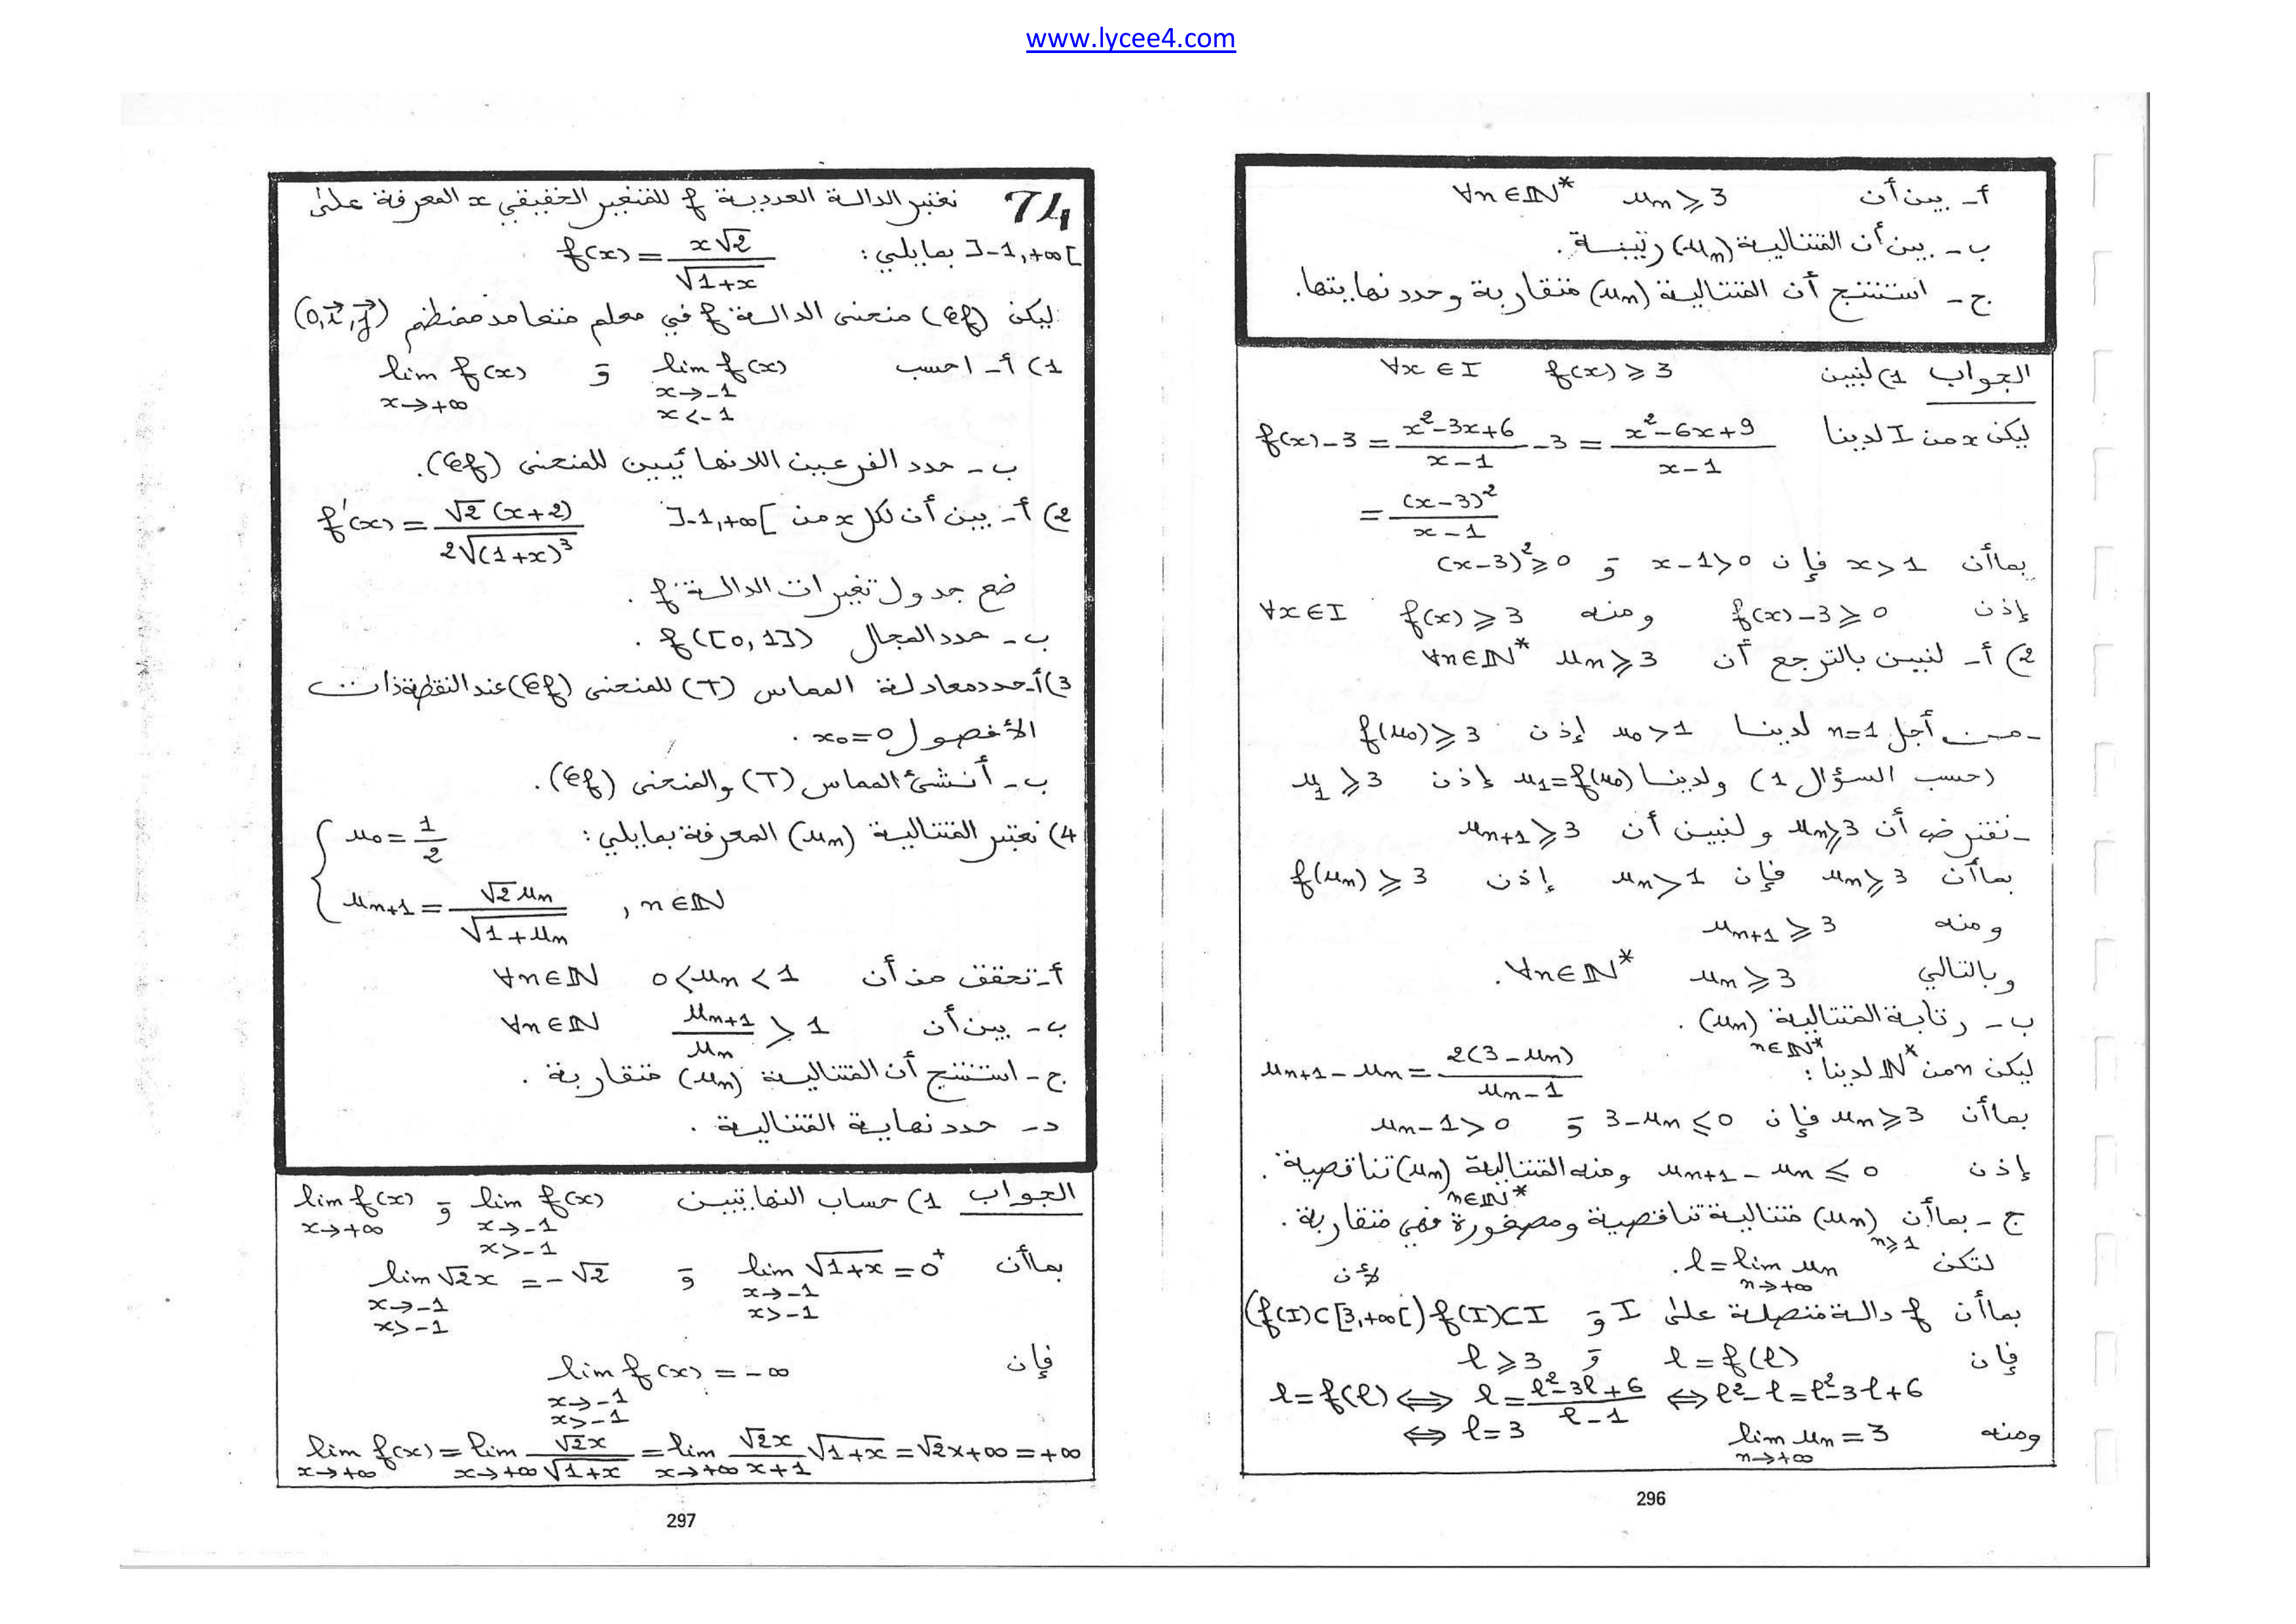 www.lycee4.com
أ- بين أن u_n ≥ 3 ∀n∈ℕ*
ب- بين أن المتتالية (u_n) رتيبة.
ج- استنتج أن المتتالية (u_n) متقاربة وحدد نهايتها.
الجواب 1) لنبين f(x) ≥ 3 ∀x∈I
ليكن x من I لدينا f(x)-3 = (x²-3x+6)/(x-1) - 3 = (x²-6x+9)/(x-1)
= (x-3)²/(x-1)
بما أن x>1 فإن x-1>0 و (x-3)²≥0
إذن f(x)-3≥0 ومنه f(x)≥3 ∀x∈I
2) أ- لنبين بالترجع أن u_n≥3 ∀n∈ℕ*
-من أجل n=1 لدينا u_0>1 إذن f(u_0)≥3
(حسب السؤال 1) ولدينا u_1=f(u_0) إذن u_1≥3
-نفترض أن u_n≥3 ولنبين أن u_{n+1}≥3
بما أن u_n≥3 فإن u_n>1 إذن f(u_n)≥3
ومنه u_{n+1}≥3
وبالتالي u_n≥3 ∀n∈ℕ*.
ب- رتابة المتتالية (u_n)_{n∈ℕ*}.
ليكن n من ℕ* لدينا: u_{n+1}-u_n = 2(3-u_n)/(u_n-1)
بما أن u_n≥3 فإن 3-u_n≤0 و u_n-1>0
إذن u_{n+1}-u_n≤0 ومنه المتتالية (u_n)_{n∈ℕ*} تناقصية.
ج- بما أن (u_n)_{n≥1} متتالية تناقصية ومصغورة فهي متقاربة.
لتكن l=lim_{n→+∞} u_n. لأن
بما أن f دالة متصلة على I و f(I)⊂I (f(I)⊂[3,+∞[)
فإن l=f(l) و l≥3
l=f(l) ⟺ l=(l²-3l+6)/(l-1) ⟺ l²-l=l²-3l+6
⟺ l=3 ومنه lim_{n→+∞} u_n=3
296
74 نعتبر الدالة العددية f للمتغير الحقيقي x المعرفة على
]-1,+∞[ بمايلي: f(x)=x√2/√(1+x)
ليكن (𝒞f) منحنى الدالة f في معلم متعامد ممنظم (0,i⃗,j⃗)
1) أ- احسب lim_{x→-1, x<-1} f(x) و lim_{x→+∞} f(x)
ب- حدد الفرعين اللانهائيين للمنحنى (𝒞f).
2) أ- بين أن لكل x من ]-1,+∞[ f'(x)=√2(x+2)/(2√((1+x)³))
ضع جدول تغيرات الدالة f.
ب- حدد المجال f([0,1]).
3) أ- حدد معادلة المماس (T) للمنحنى (𝒞f) عند النقطة ذات
الأفصول x_0=0.
ب- أنشئ المماس (T) والمنحنى (𝒞f).
4) نعتبر المتتالية (u_n) المعرفة بمايلي: { u_0=1/2
u_{n+1}=√2u_n/√(1+u_n) , n∈ℕ
أ- تحقق من أن 0<u_n<1 ∀n∈ℕ
ب- بين أن u_{n+1}/u_n > 1 ∀n∈ℕ
ج- استنتج أن المتتالية (u_n) متقاربة.
د- حدد نهاية المتتالية.
الجواب 1) حساب النهايتين lim_{x→-1, x>-1} f(x) و lim_{x→+∞} f(x)
بما أن lim_{x→-1, x>-1} √(1+x)=0⁺ و lim_{x→-1, x>-1} √2x=-√2
فإن lim_{x→-1, x>-1} f(x)=-∞
lim_{x→+∞} f(x)=lim_{x→+∞} √2x/√(1+x)=lim_{x→+∞} √2x/(x+1) √(1+x)=√2×+∞=+∞
297